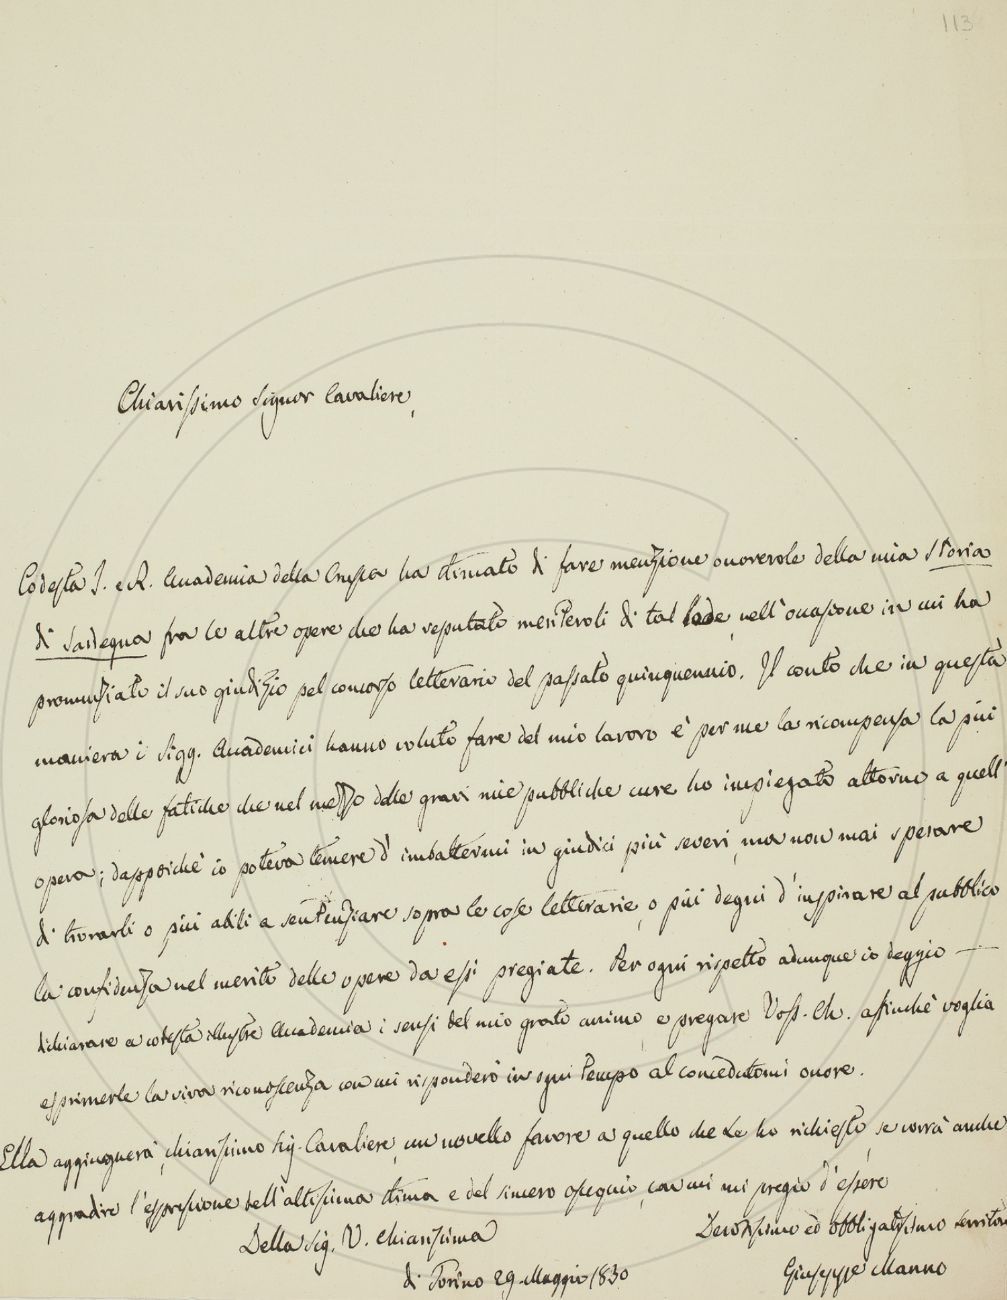 113
Chiarissimo Signor Cavaliere,
Codesta I. e R. Accademia della Crusca ha stimato di fare menzione onorevole della mia Storia
di Sardegna fra le altre opere che ha reputato meritevoli di tal lode, nell'occasione in cui ha
pronunziato il suo giudizio pel concorso letterario del passato quinquennio. Il conto che in questa
maniera i Sigg. Accademici hanno voluto fare del mio lavoro è per me la ricompensa la più
gloriosa delle fatiche che nel mezzo delle gravi mie pubbliche cure ho impiegato attorno a quell'
opera; dappoichè io poteva temere d'imbattermi in giudici più severi, ma non mai sperare
di trovarli o più abili a sentenziare sopra le cose letterarie, o più degni d'inspirare al pubblico
la confidenza nel merito delle opere da essi pregiate. Per ogni rispetto adunque io deggio —
dichiarare a codesta illustre Accademia i sensi del mio grato animo, e pregare Voss. Ch. affinchè voglia
esprimerle la viva riconoscenza con cui risponderò in ogni tempo al concedutomi onore.
Ella aggiugnerà, chiarissimo Sig. Cavaliere, un novello favore a quello che Le ho richiesto, se vorrà anche
aggradire l'espressione dell'altissima stima e del sincero ossequio, con cui mi pregio d'essere
Della Sig. V. Chiarissima
Devotissimo ed obbligatissimo servitore
di Torino 29. Maggio 1830
Giuseppe Manno